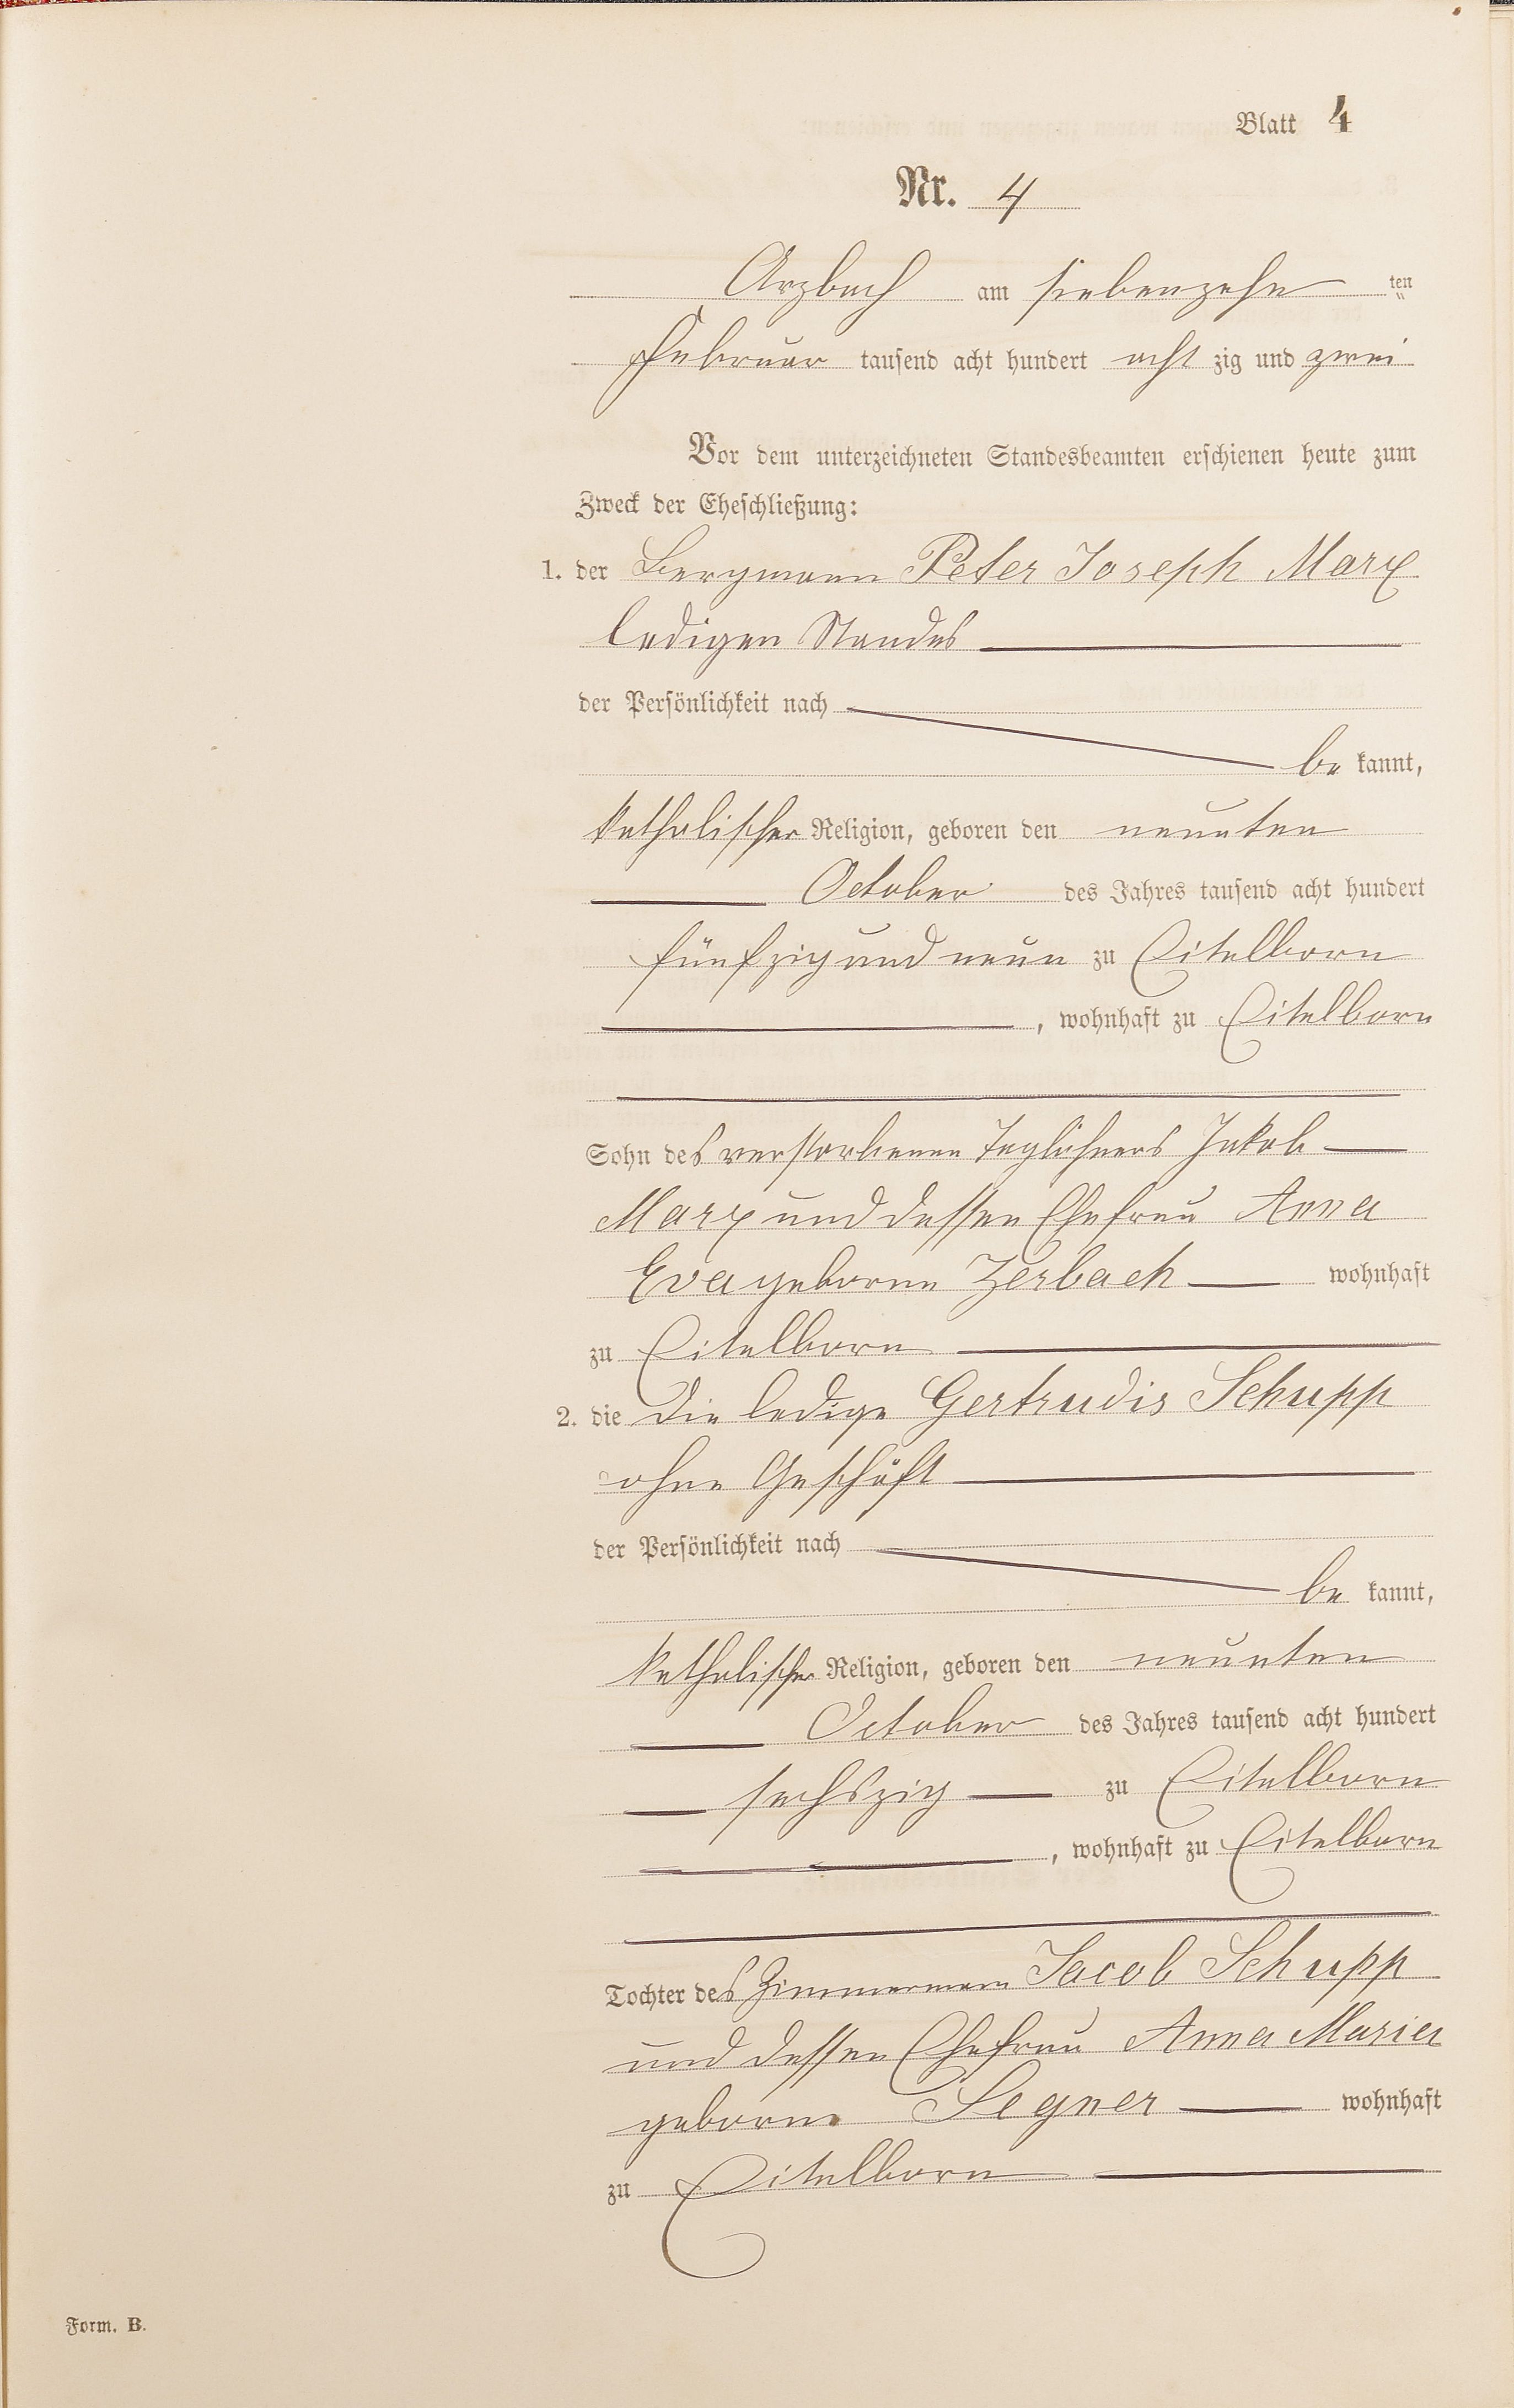 Blatt 4
Nr. 4
Arzbach am siebenzehn ten
Februar tausend acht hundert acht zig und zwei
Vor dem unterzeichneten Standesbeamten erschienen heute zum
Zweck der Eheschließung:
1. der Bergmann Peter Joseph Marx
ledigen Standes
der Persönlichkeit nach
be kannt,
katholischer Religion, geboren den neunten
October des Jahres tausend acht hundert
fünfzig und neun zu Eitelborn
, wohnhaft zu Eitelborn
Sohn des verstorbenen Taglöhners Jakob
Marx und dessen Ehefrau Anna
Eva geborne Zerbach wohnhaft
zu Eitelborn
2. die die ledige Gertrudis Schupp
ohne Geschäft
der Persönlichkeit nach
be kannt,
katholischer Religion, geboren den neunten
October des Jahres tausend acht hundert
sechszig zu Eitelborn
, wohnhaft zu Eitelborn
Tochter des Zimmermann Jacob Schupp
und dessen Ehefrau Anna Maria
geborne Legner wohnhaft
zu Eitelborn
Form. B.